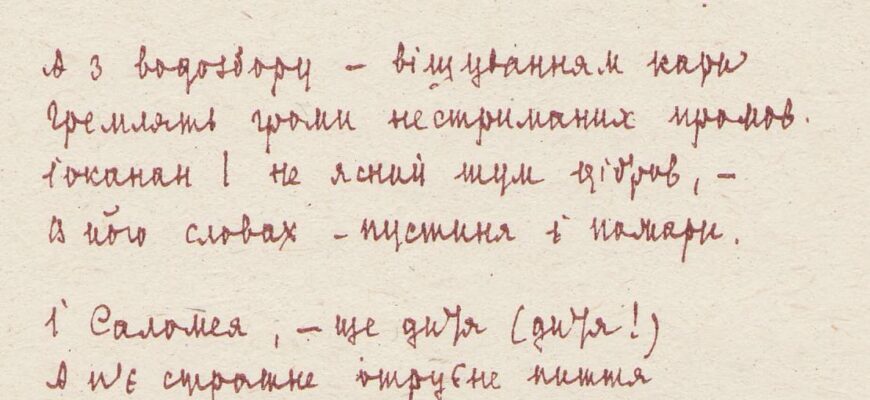 А з водозбору – віщуванням кари
Гремлять громи нестриманих промов.
Іоканан! не ясний шум дібров, –
В його словах – пустиня і пожари.
І Саломея, – ще дитя (дитя!)
А п'є страшне отруєне пиття